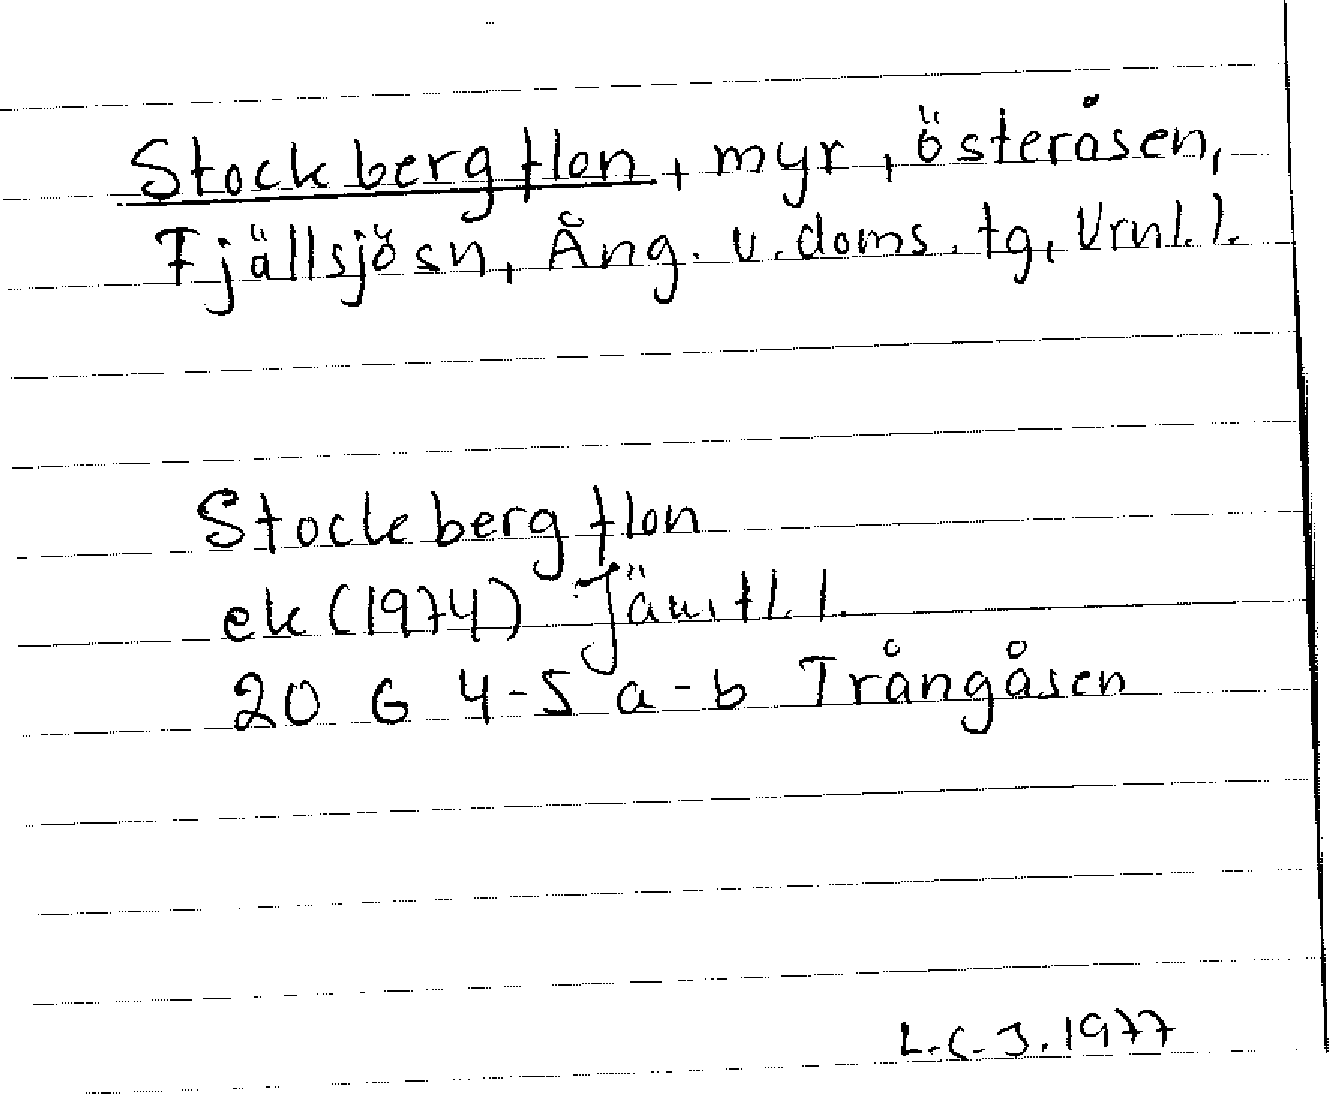 Stockbergflon, myr, Österåsen,
Fjällsjösn, Ång. v. doms. tg, Vrnl. l.
Stockbergflon
ek (1974) Jämtl. l.
20 G 4-5 a-b Trångåsen
L.C.J. 1977